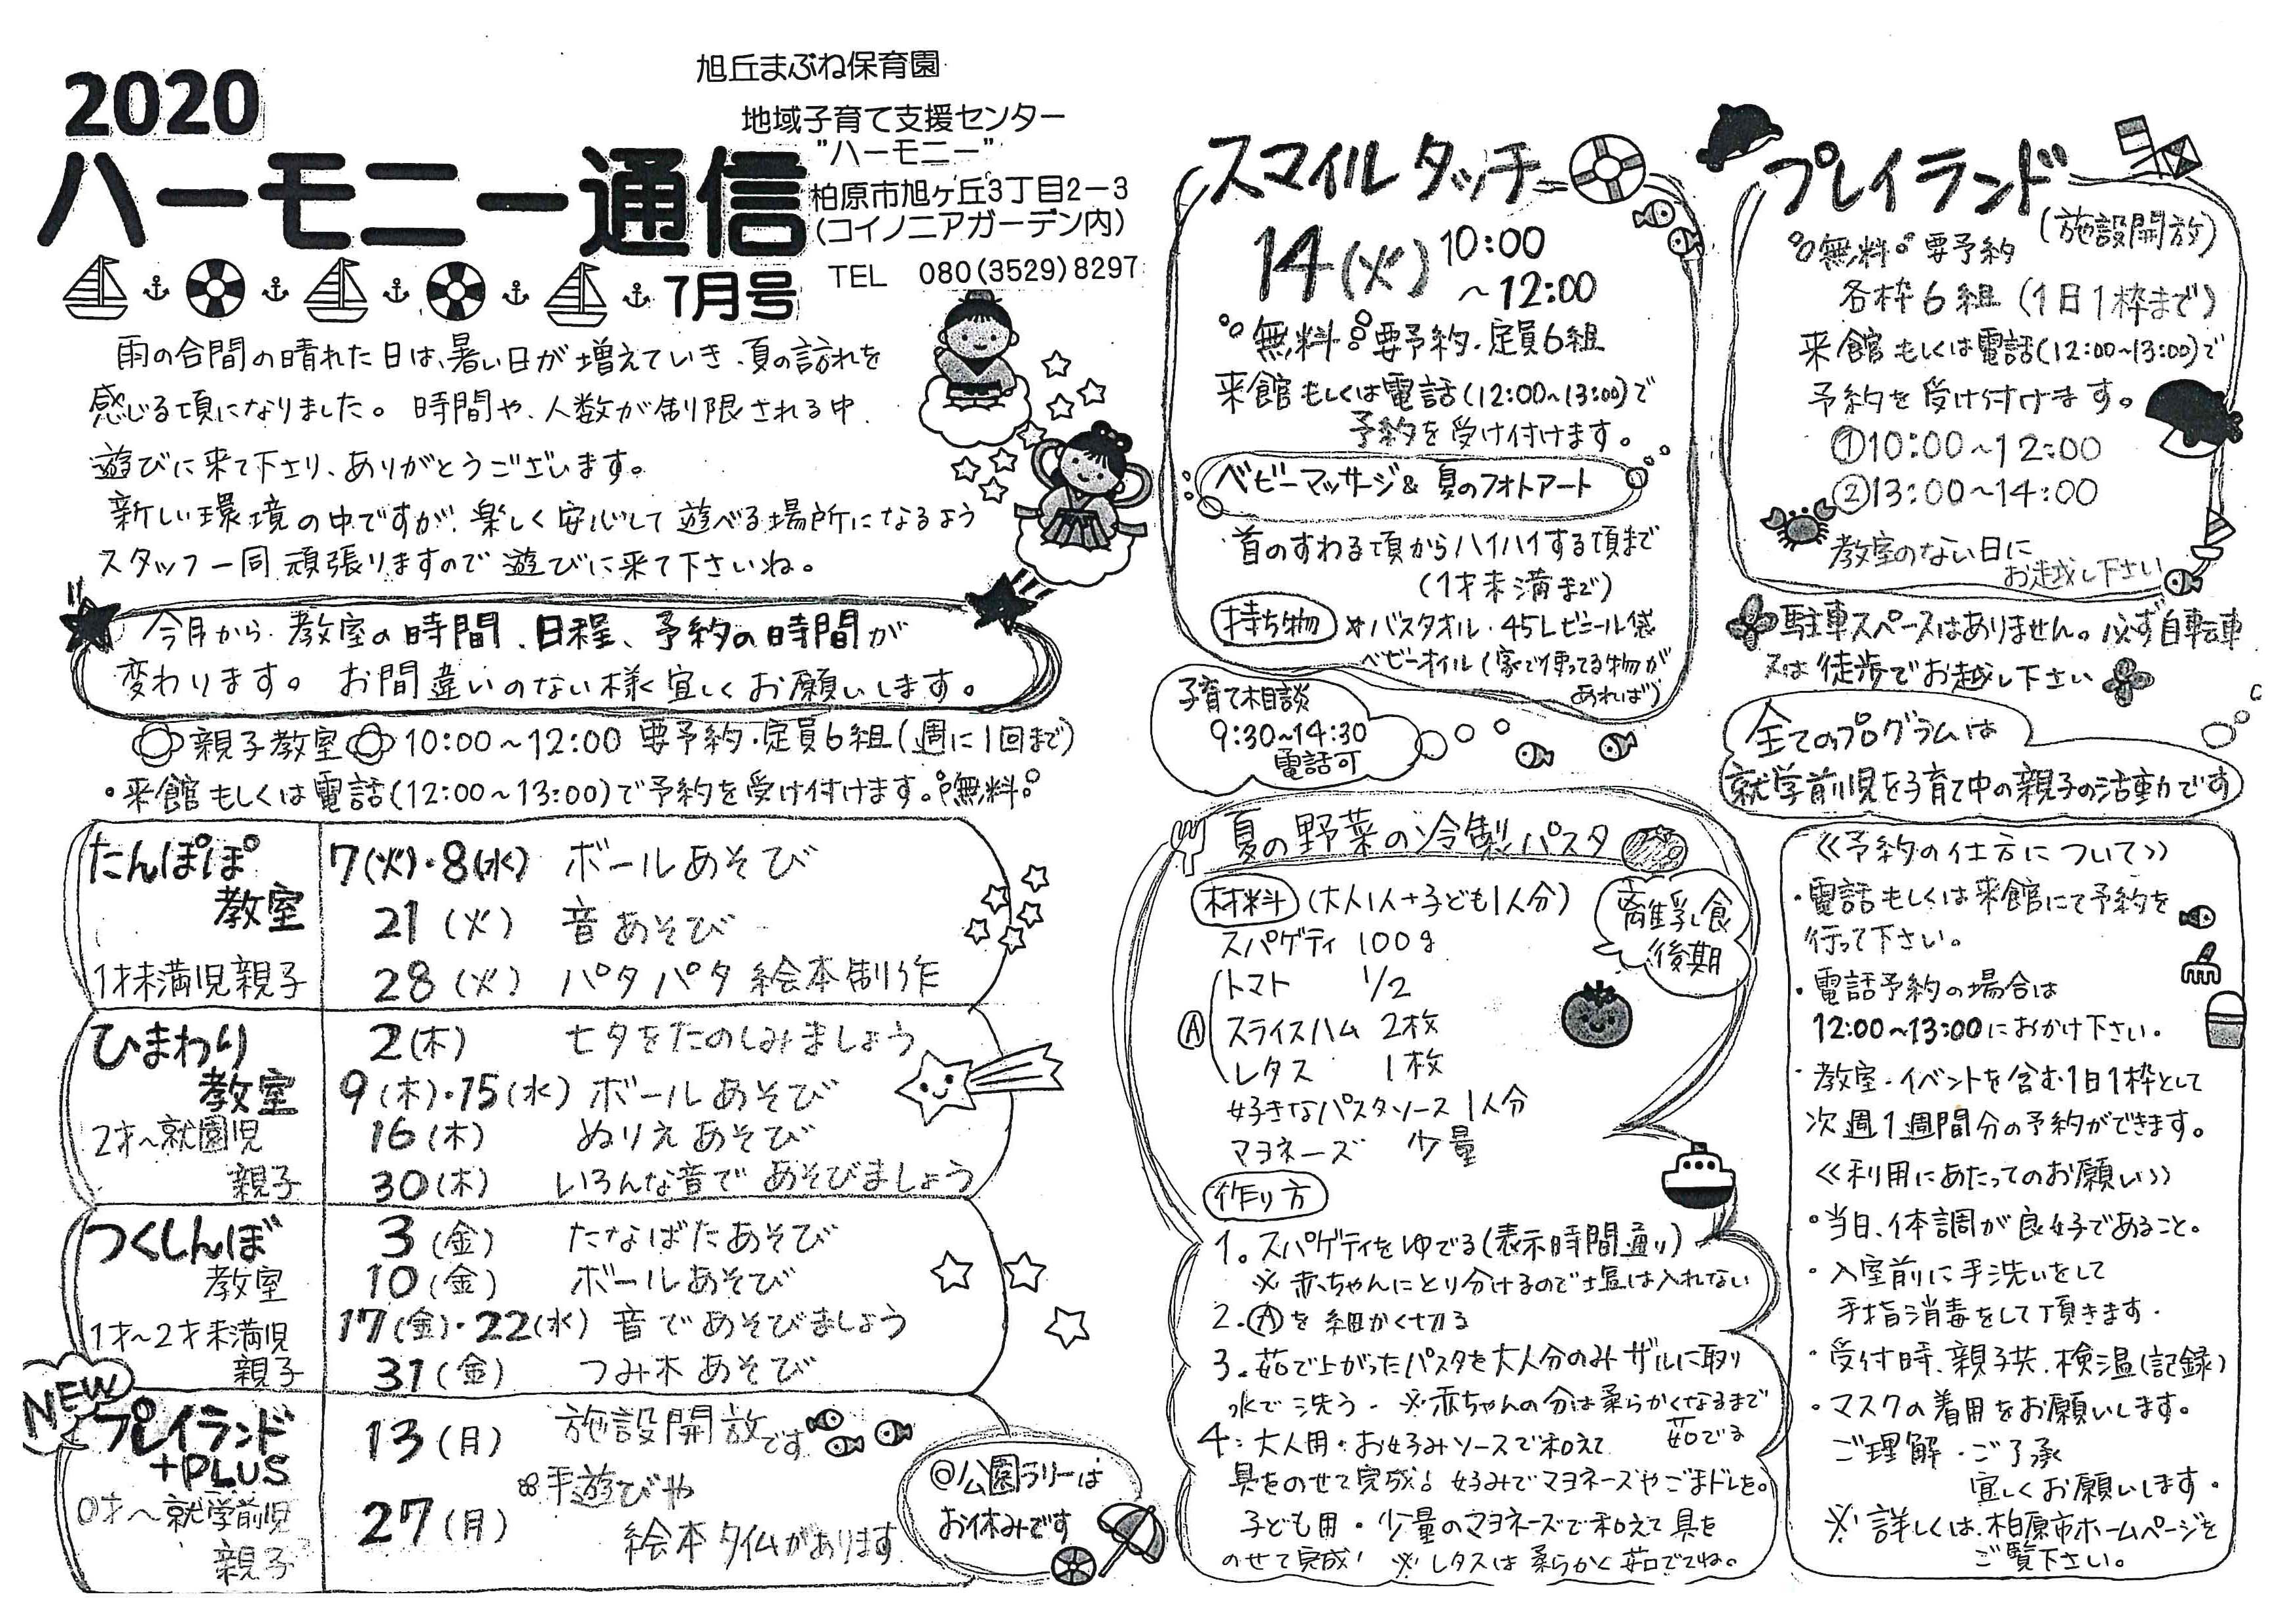 2020
ハーモニー通信
7月号
旭丘まぶね保育園
地域子育て支援センター
"ハーモニー"
柏原市旭ヶ丘3丁目2-3
(コイノニアガーデン内)
TEL 080(3529)8297
雨の合間の晴れた日は、暑い日が増えていき、夏の訪れを
感じる頃になりました。時間や、人数が制限される中、
遊びに来て下さり、ありがとうございます。
新しい環境の中ですが、楽しく安心して遊べる場所になるよう
スタッフ一同頑張りますので遊びに来て下さいね。
今月から教室の時間、日程、予約の時間が
変わります。お間違いのない様宜しくお願いします。
親子教室 10:00~12:00 要予約・定員6組(週に1回まで)
・来館もしくは電話(12:00~13:00)で予約を受け付けます。無料
たんぽぽ
教室
1才未満児親子
7(火)・8(水) ボールあそび
21(火) 音あそび
28(火) パタパタ絵本制作
ひまわり
教室
2才~就園児
親子
2(木) 七夕をたのしみましょう
9(木)・15(水) ボールあそび
16(木) ぬりえあそび
30(木) いろんな音であそびましょう
つくしんぼ
教室
1才~2才未満児
親子
3(金) たなばたあそび
10(金) ボールあそび
17(金)・22(水) 音であそびましょう
31(金) つみ木あそび
NEW
プレイランド
+PLUS
0才~就学前児
親子
13(月) 施設開放です
27(月) 手遊びや
絵本タイムがあります
@公園ラリーは
お休みです
スマイルタッチ
14(火) 10:00
~12:00
無料 要予約・定員6組
来館もしくは電話(12:00~13:00)で
予約を受け付けます。
ベビーマッサージ&夏のフォトアート
首のすわる頃からハイハイする頃まで
(1才未満まで)
持ち物 *バスタオル・45Lビニール袋
ベビーオイル(家で使ってる物が
あれば)
子育て相談
9:30~14:30
電話可
夏の野菜の冷製パスタ
離乳食
後期
材料 (大人1人+子ども1人分)
スパゲティ 100g
トマト 1/2
Ⓐ スライスハム 2枚
レタス 1枚
好きなパスタソース 1人分
マヨネーズ 少量
作り方
1。スパゲティをゆでる(表示時間通り)
※赤ちゃんにとり分けるので塩は入れない
2.Ⓐを細かく切る
3.茹で上がったパスタを大人分のみザルに取り
水で洗う。※赤ちゃんの分は柔らかくなるまで
茹でる
4:大人用・お好みソースで和えて
具をのせて完成!好みでマヨネーズやごまドレを。
子ども用・少量のマヨネーズで和えて具を
のせて完成! ※レタスは柔らかく茹でてね。
プレイランド
(施設開放)
無料 要予約
各枠6組(1日1枠まで)
来館もしくは電話(12:00~13:00)で
予約を受け付けます。
①10:00~12:00
②13:00~14:00
教室のない日に
お越し下さい
駐車スペースはありません。必ず自転車
又は徒歩でお越し下さい
全てのプログラムは
就学前児を子育て中の親子の活動です
≪予約の仕方について≫
・電話もしくは来館にて予約を
行って下さい。
・電話予約の場合は
12:00~13:00におかけ下さい。
・教室・イベントを含む1日1枠として
次週1週間分の予約ができます。
≪利用にあたってのお願い≫
・当日、体調が良好であること。
・入室前に手洗いをして
手指消毒をして頂きます。
・受付時、親子共、検温(記録)
・マスクの着用をお願いします。
ご理解・ご了承
宜しくお願いします。
※詳しくは、柏原市ホームページを
ご覧下さい。